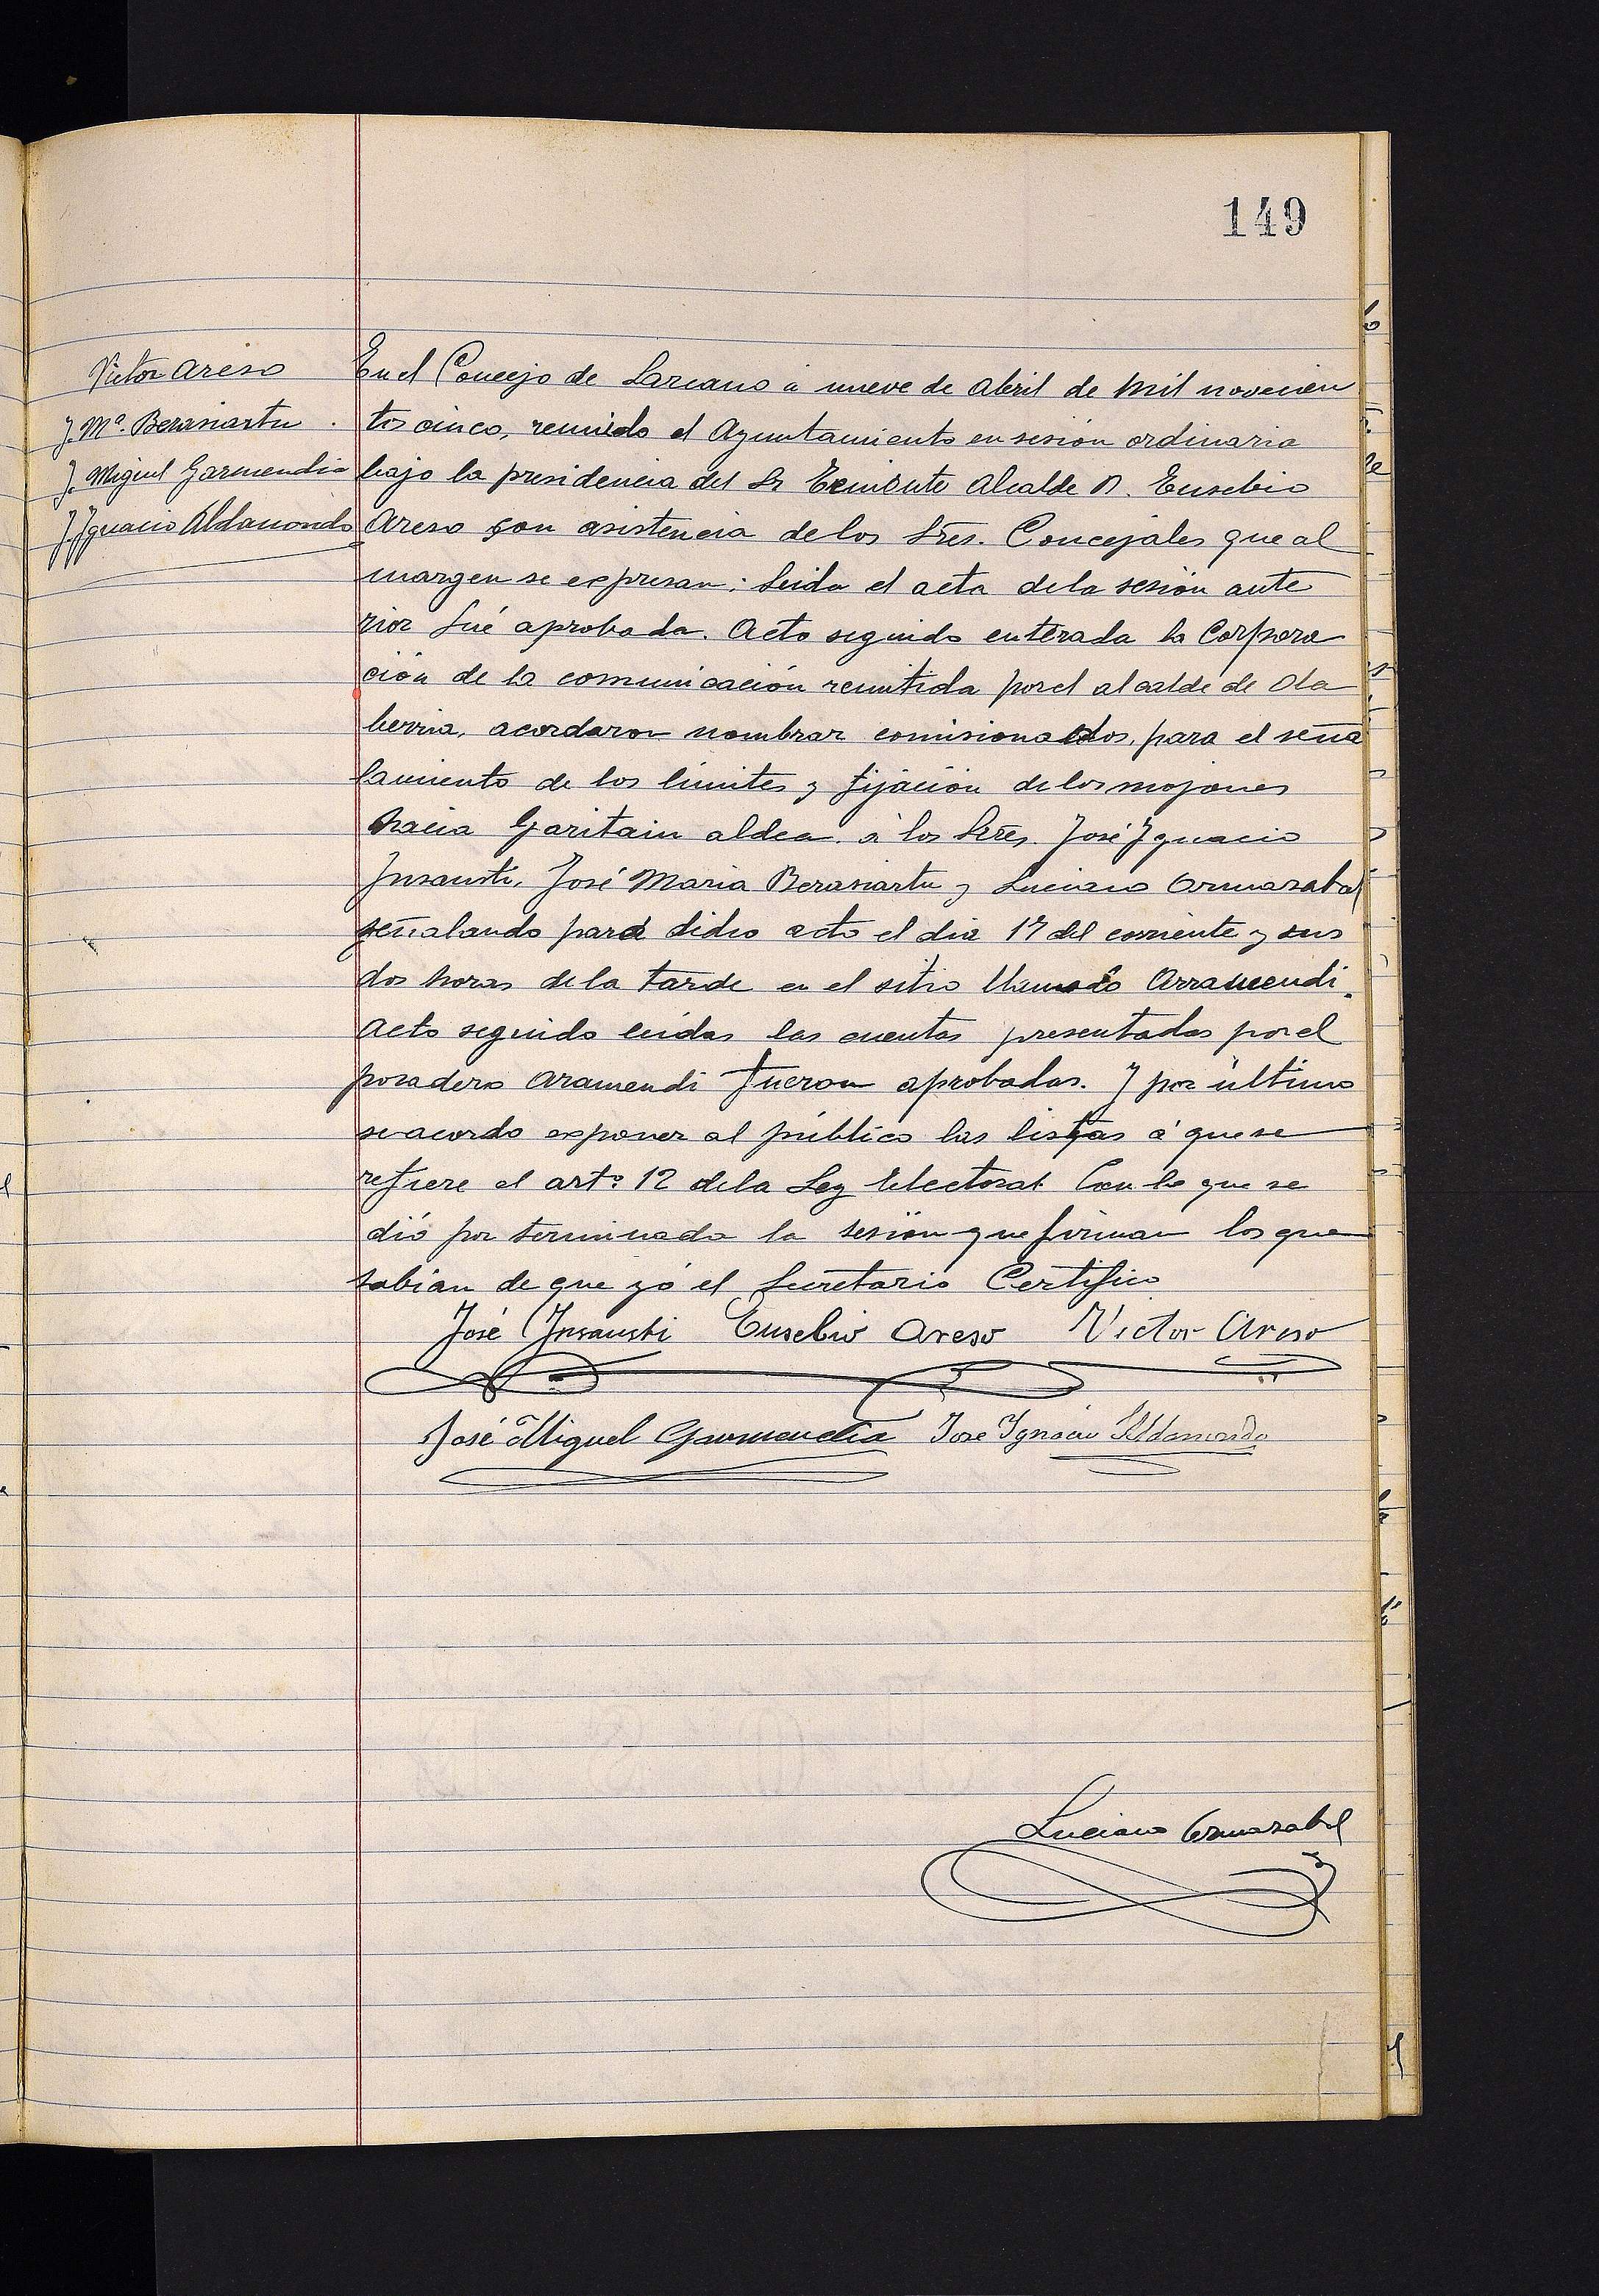 149
Victor Areso
J. Mª. Berasiartu.
J. Miguel Garmendia
J. Ignacio Aldanondo
En el Concejo de Lazcano á nueve de Abril de Mil novecien
tos cinco, reunido el Ayuntamiento en sesion ordinaria
bajo la presidencia del Sr Teniente Alcalde D. Eusebio
Areso con asistencia de los Sres. Concejales que al
margen se expresan: Leida el acta de la sesión ante
rior fué aprobada. Acto seguido enterada la Corpora
ción de la comunicación remitida por el alcalde de Ola
berria, acordaron nombrar comisionados, para el seña
lamiento de los limites y fijación de los mojones
hacia Garitain aldea á los Sres. José Ignacio
Insausti, José Maria Berasiartu y Luciano Ormazabal
señalando para dicho acto el dia 17 del corriente y sus
dos horas de la tarde en el sitio llamado Arramendi.
Acto seguido leidas las cuentas presentadas por el
posadero Aramendi fueron aprobadas. Y por último
se acordo exponer al público las listas á que se
refiere el artº 12 de la Ley Electoral Con lo que se
dió por terminada la sesión que firman los que
sabian de que yó el Secretario Certifico
José Insausti Eusebio Areso Victor Areso
José Miguel Garmendia José Ignacio Aldanondo
Luciano Ormazabal